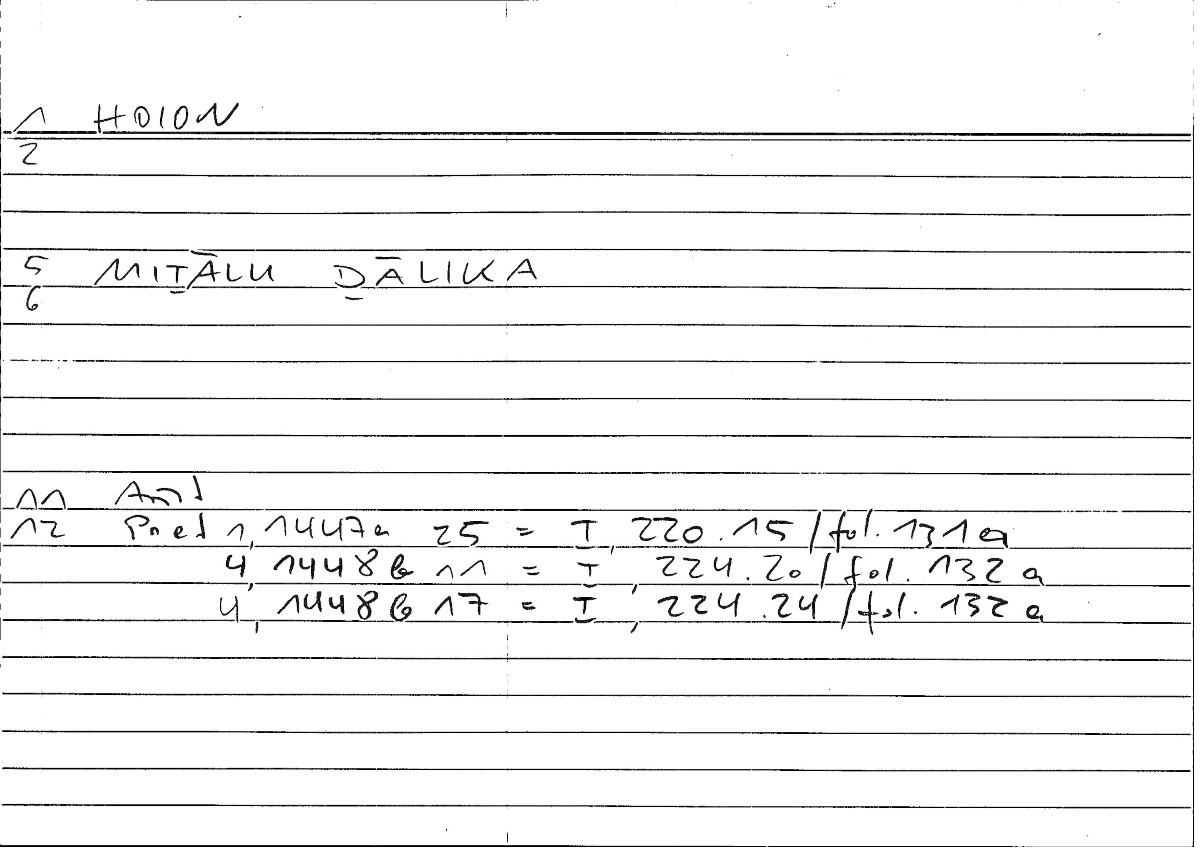 1 HOION
2
5 MIṮĀLU ḎĀLIKA
6
11 Arist
12 Poet 1, 1447a 25 = I, 220.15 / fol. 131a
4, 1448b 11 = I, 224.20 / fol. 132a
4, 1448b 17 = I, 224.24 / fol. 132a